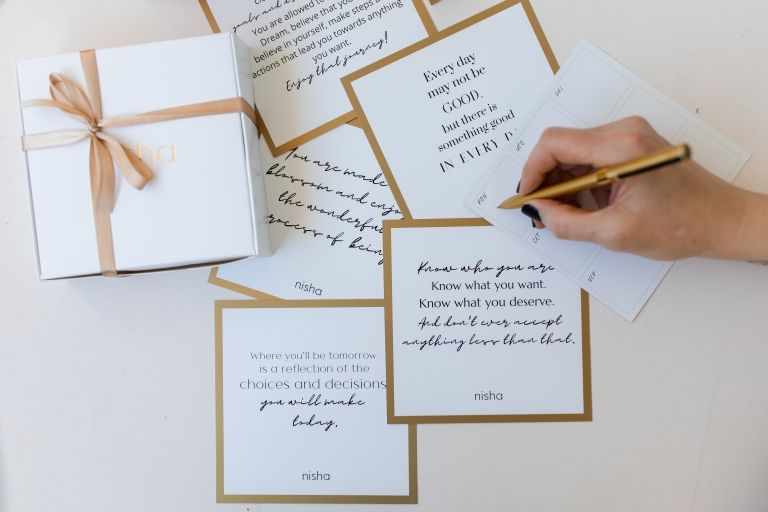 goals and
You are allowed to
Dream, believe that you
believe in yourself, make steps
actions that lead you towards anything
you want.
Enjoy that journey!
Every day
may not be
GOOD.
but there is
something good
IN EVERY
You are made
blossom and enjoy
the wonderful
process of being
nisha
Know who you are
Know what you want.
Know what you deserve.
And don't ever accept
anything less than that.
nisha
Where you'll be tomorrow
is a reflection of the
choices and decisions
you will make
today.
nisha